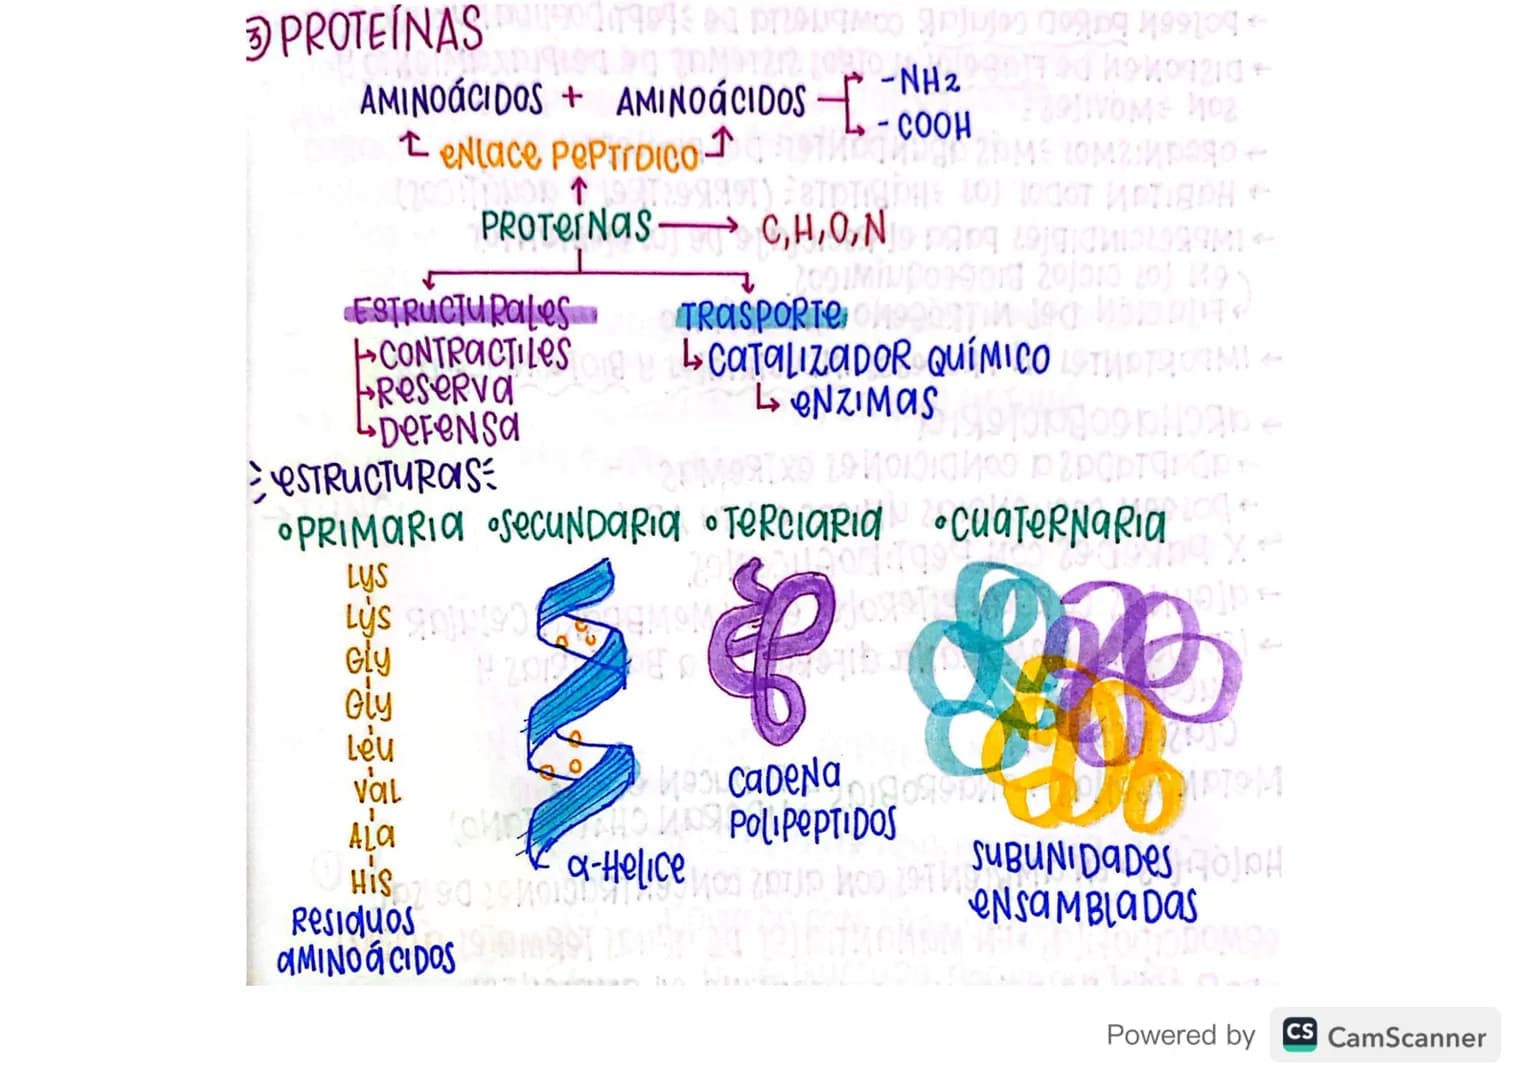 ③ PROTEÍNAS
AMINOÁCIDOS + AMINOÁCIDOS
-NH2
-COOH
enlace PEPTÍDICO
PROTEÍNAS → C,H,O,N
ESTRUCTURALES
CONTRACTILES
RESERVA
DEFENSA
TRASPORTE
CATALIZADOR QUÍMICO
ENZIMAS
ESTRUCTURAS
PRIMARIA
SECUNDARIA
TERCIARIA
CUATERNARIA
Lys
Lys
Gly
Gly
Leu
Val
Ala
His
RESIDUOS
AMINOÁCIDOS
α-HELICE
CADENA
POLIPEPTIDOS
SUBUNIDADES
ENSAMBLADAS
Powered by CS CamScanner